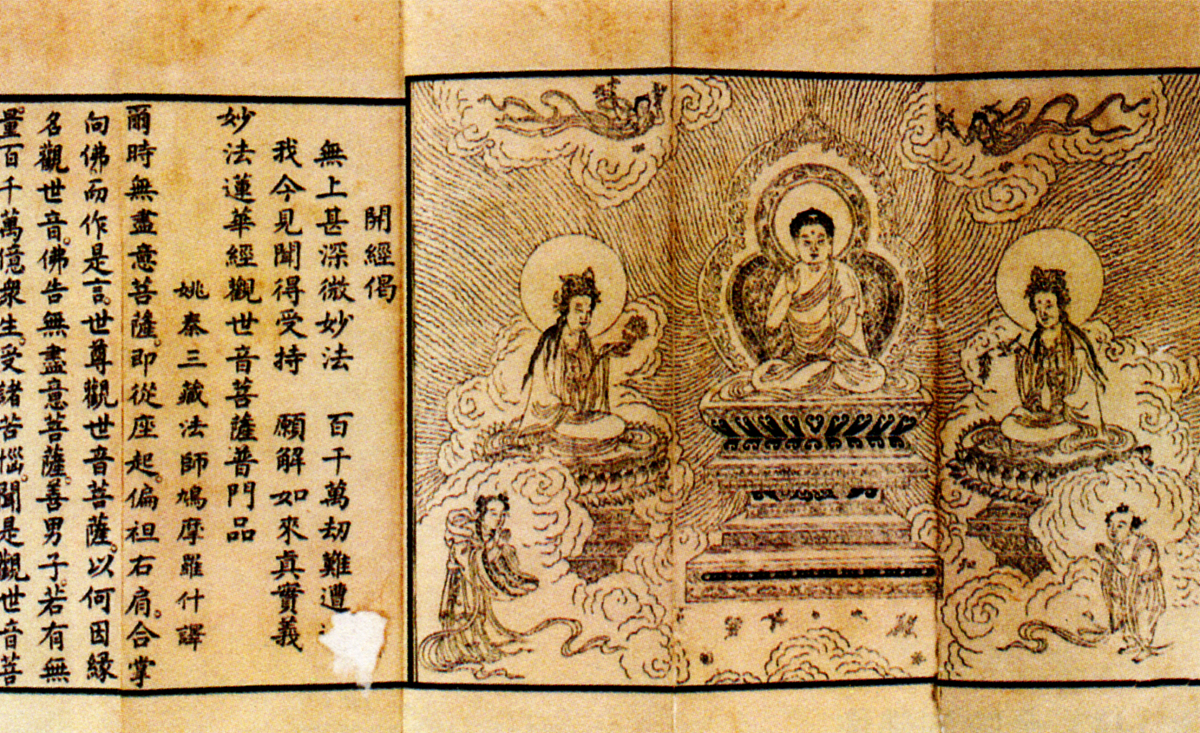 開經偈
無上甚深微妙法　百千萬劫難遭
我今見聞得受持　願解如來真實義
妙法蓮華經觀世音菩薩普門品
姚秦三藏法師鳩摩羅什譯
爾時無盡意菩薩。即從座起。偏袒右肩。合掌
向佛。而作是言。世尊。觀世音菩薩。以何因緣
名觀世音。佛告無盡意菩薩。善男子。若有無
量百千萬億衆生。受諸苦惱。聞是觀世音菩